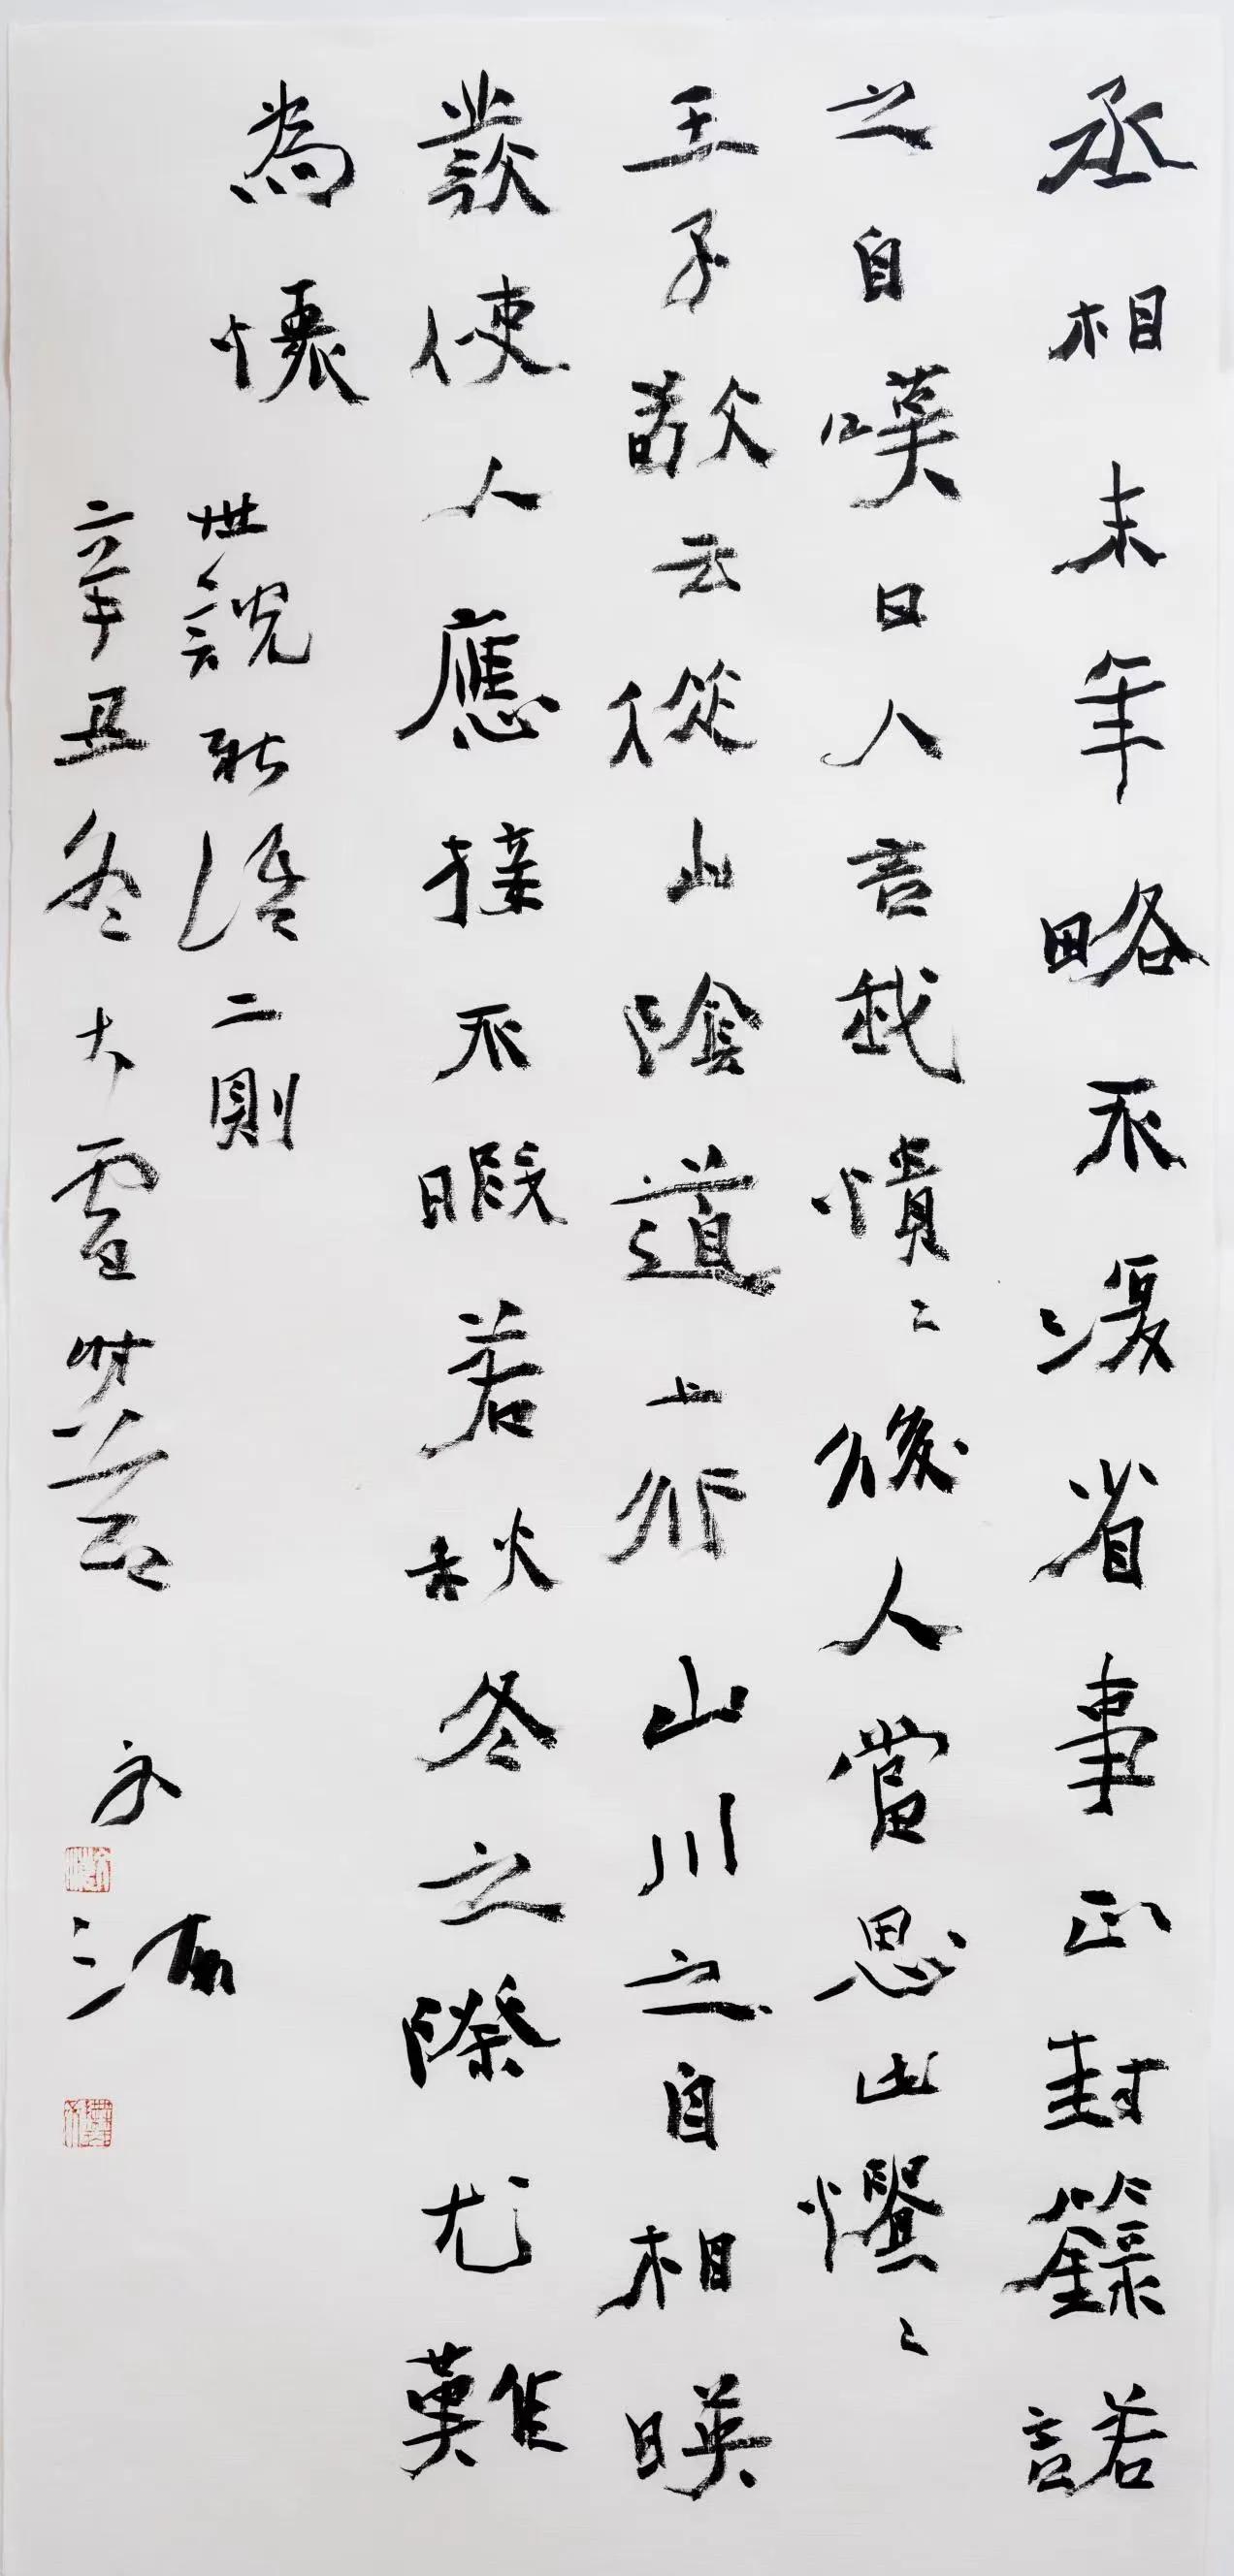 丞相末年略不復省事正封籙諾
之自嘆曰人言我憒〻後人當思此憒〻
王子敬云從山陰道上行山川之自相暎
發使人應接不暇若秋冬之際尤難
為懷
世説新語二則
辛丑冬大雪時節